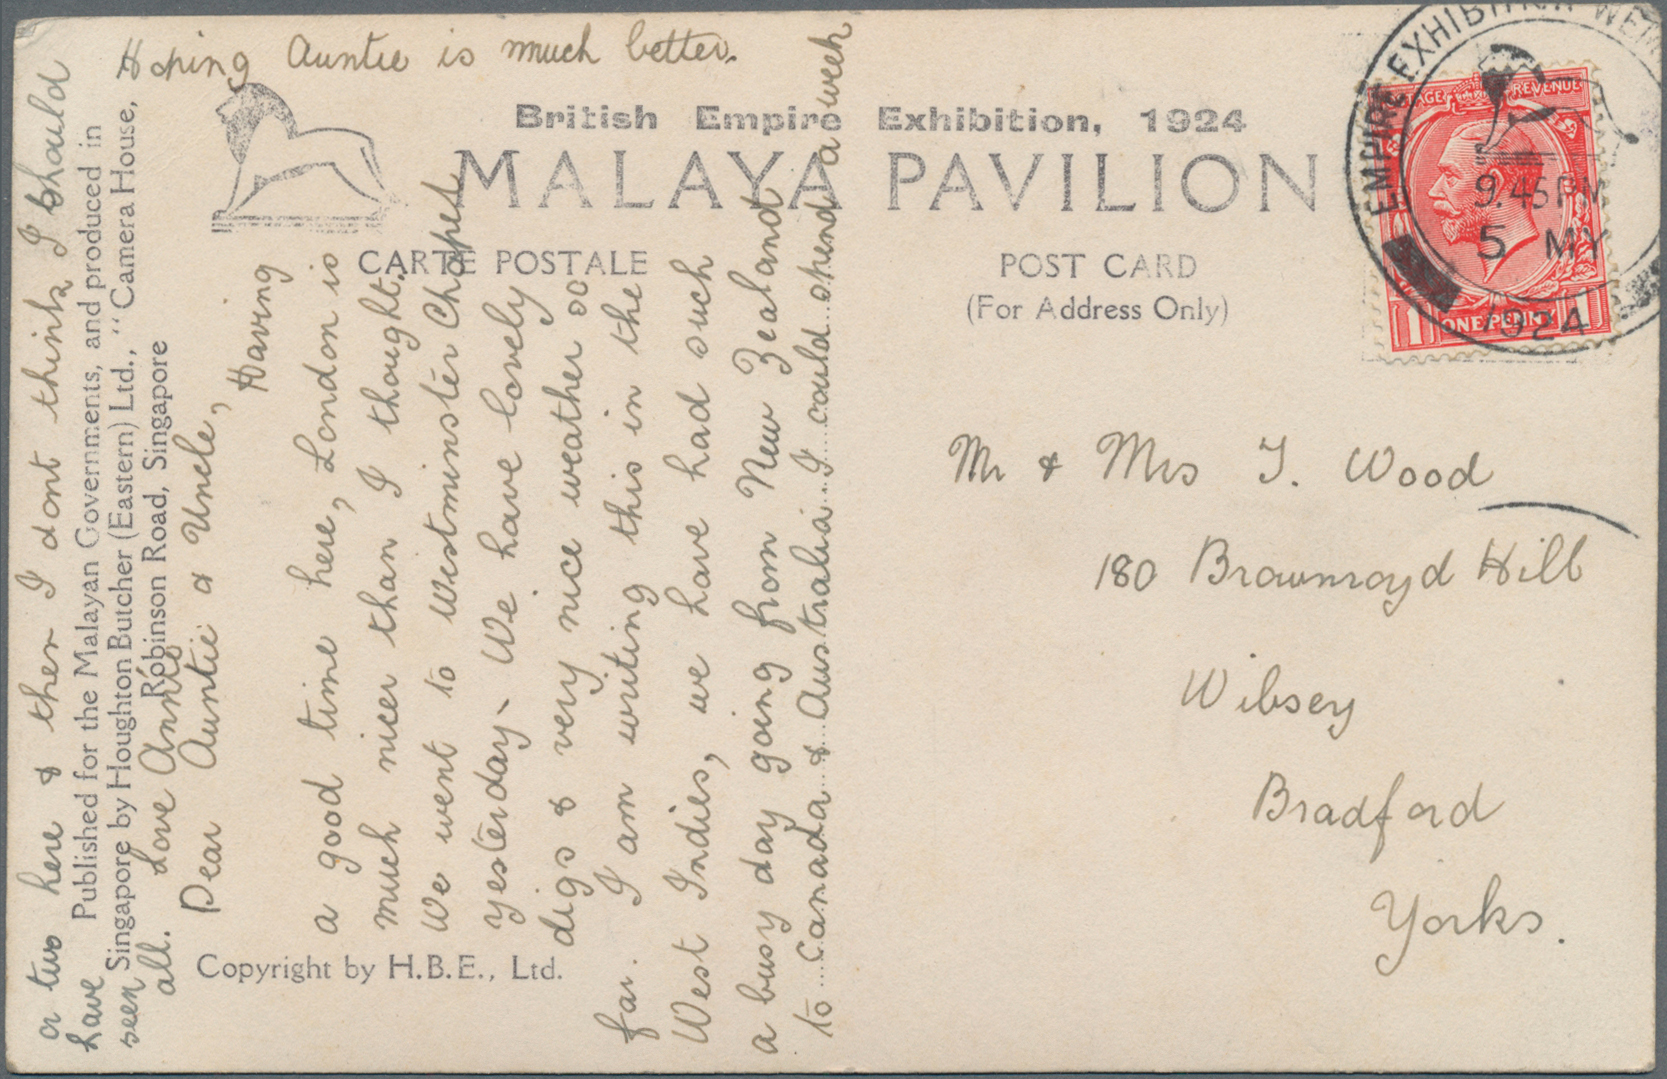 Hoping Auntie is much better.
British Empire Exhibition, 1924
MALAYA PAVILION
CARTE POSTALE
POST CARD
(For Address Only)
EMPIRE EXHIBITION WEM
9.45 PM
5 MY
1924
POSTAGE REVENUE
1 ONE PENNY 1
Mr & Mrs T. Wood
180 Brownroyd Hill
Wibsey
Bradford
Yorks.
Published for the Malayan Governments, and produced in
Singapore by Houghton Butcher (Eastern) Ltd., "Camera House,
Robinson Road, Singapore
Copyright by H.B.E., Ltd.
Dear Auntie & Uncle,
Having
a good time here, London is
much nicer than I thought.
We went to Westminster Chapel
yesterday. We have lovely
digs & very nice weather so
far. I am writing this in the
West Indies, we have had such
a busy day going from New Zealand
to Canada & Australia. I could spend a week
or two here & then I dont think I should
have
seen
all.
Love Annie